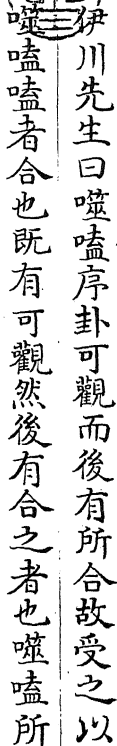 伊川先生曰噬嗑序卦可觀而後有所合故受之以
噬嗑嗑者合也既有可觀然後有合之者也噬嗑所